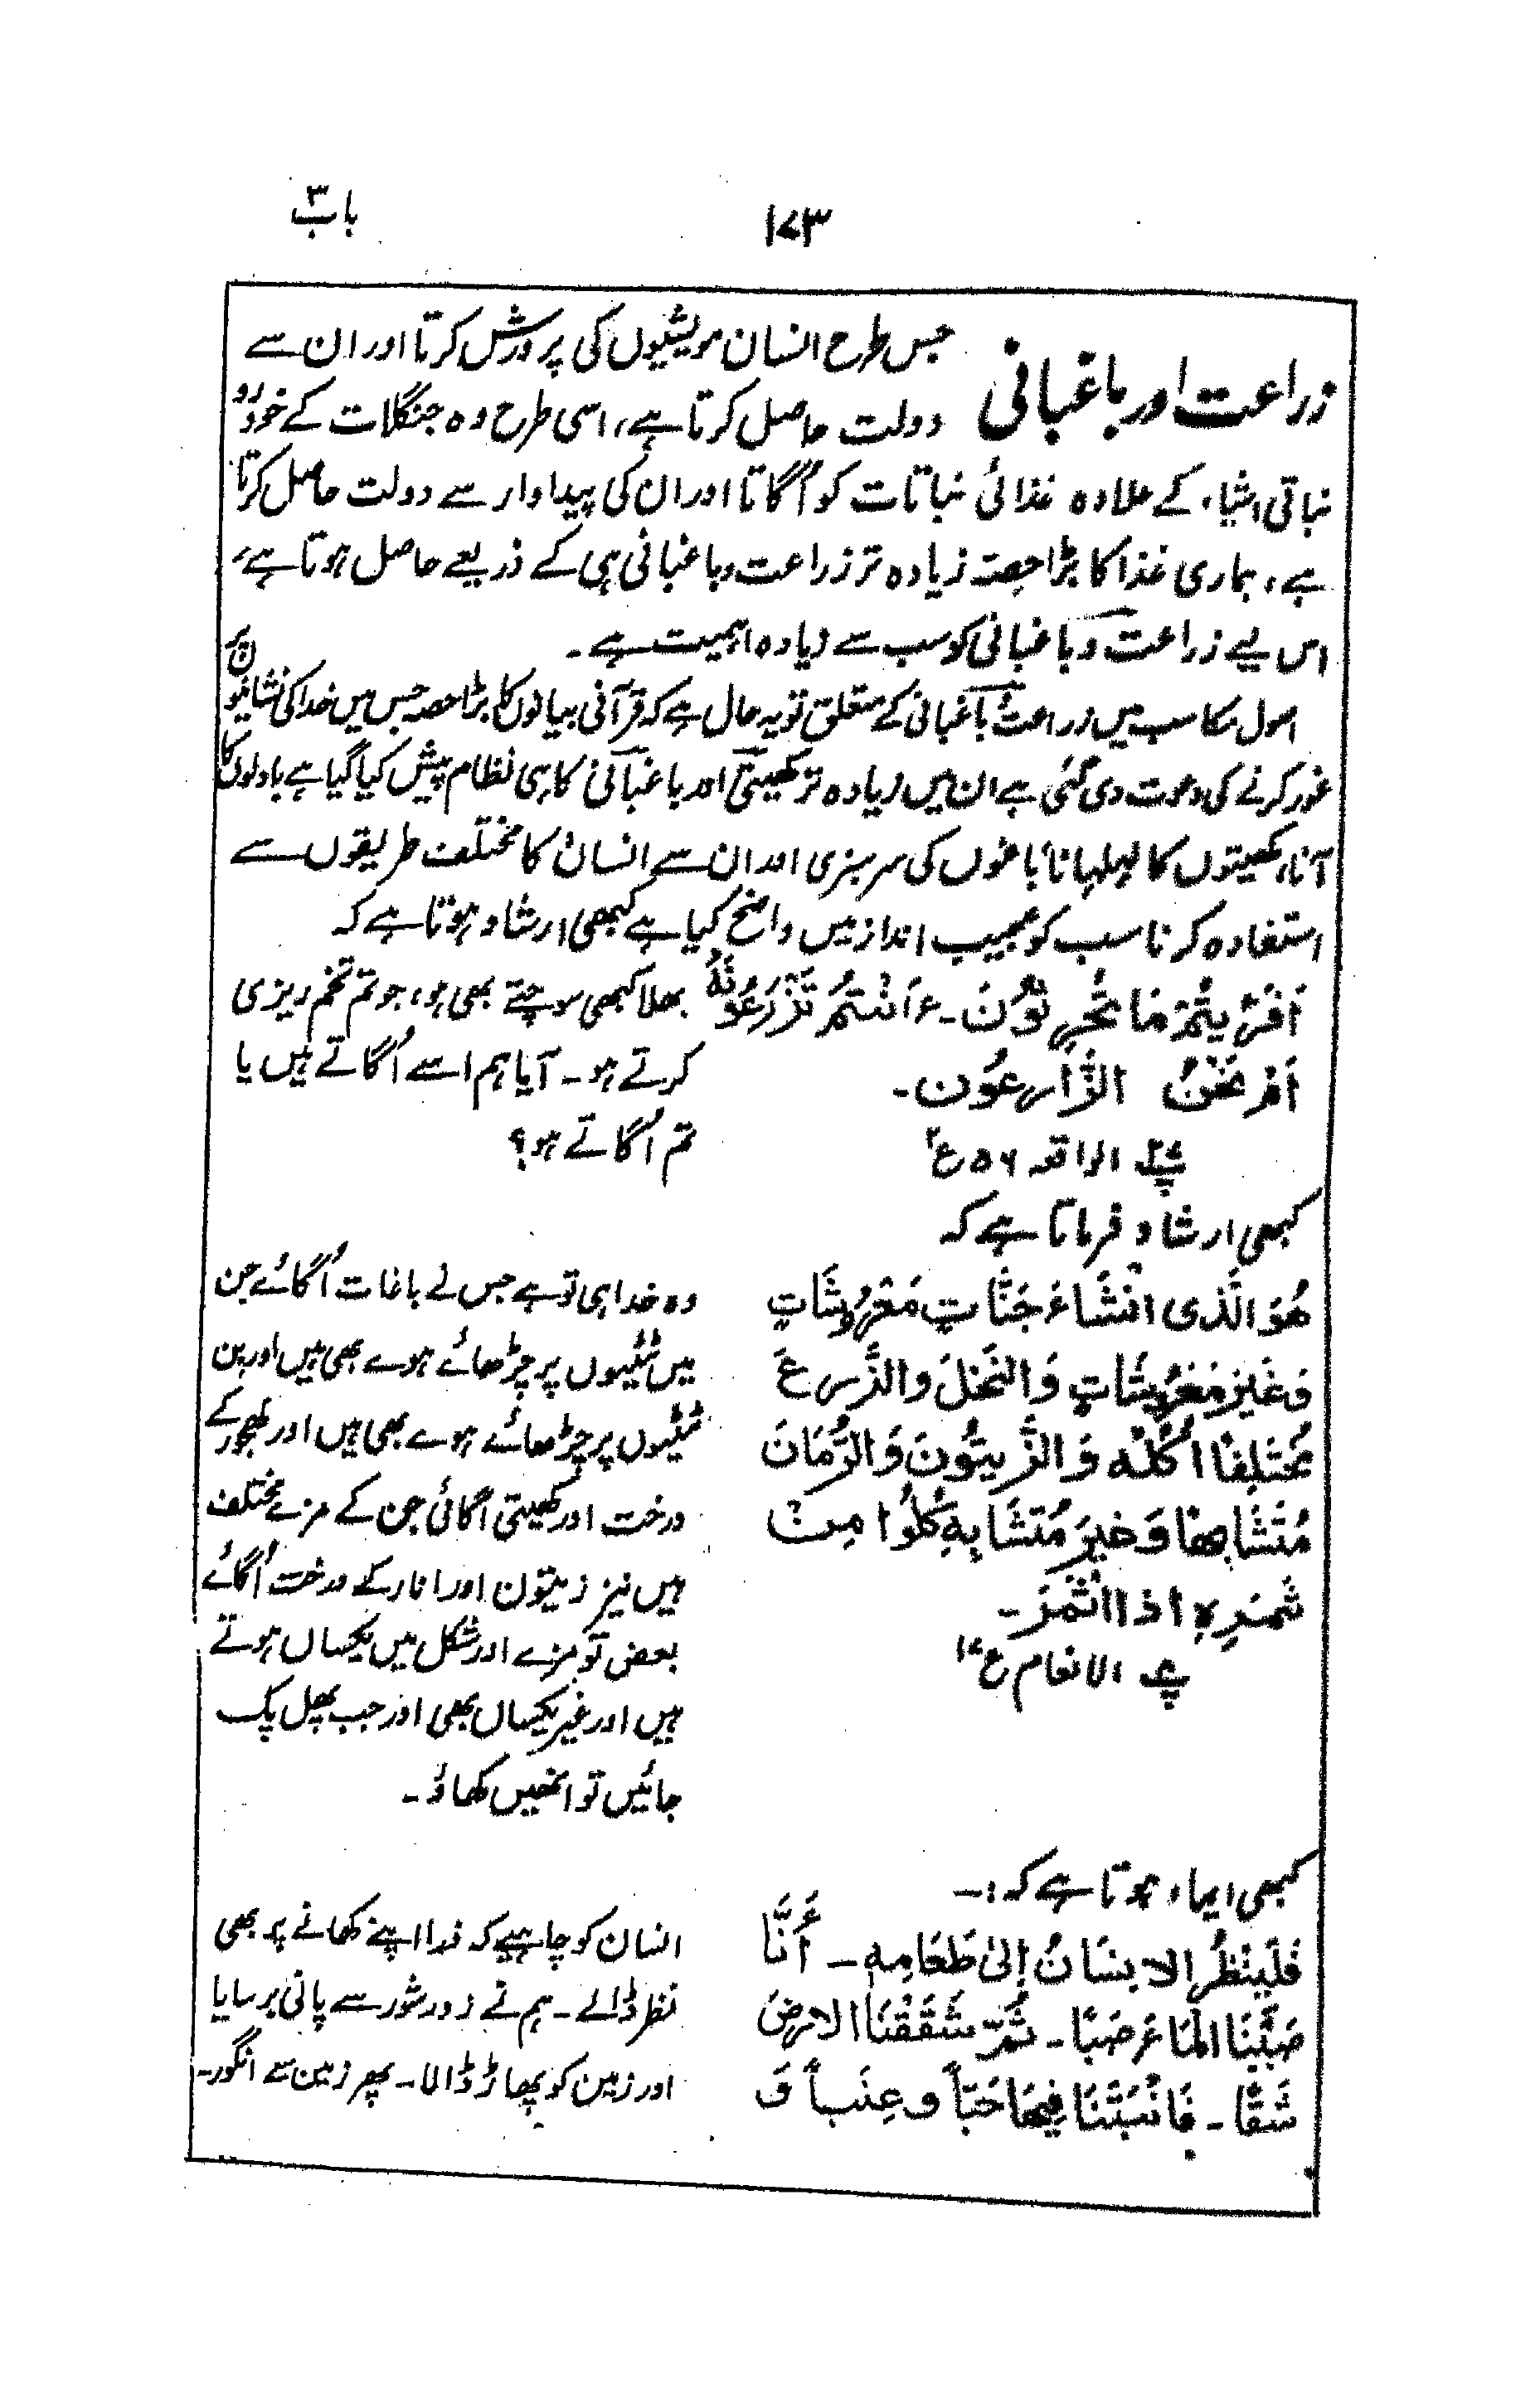 باب ۳
۱۷۳
زراعت اور باغبانی
جس طرح انسان مویشیوں کی پرورش کرتا اور ان سے
دولت حاصل کرتا ہے، اسی طرح وہ جنگلات کے خود رو
نباتی اشیاء کے علاوہ غذائی نباتات کو اُگاتا اور ان کی پیداوار سے دولت حاصل کرتا
ہے، ہماری غذا کا بڑا حصہ زیادہ تر زراعت و باغبانی ہی کے ذریعے حاصل ہوتا ہے،
اس لیے زراعت و باغبانی کو سب سے زیادہ اہمیت ہے۔
اصول مکاسب میں زراعت باغبانی کے متعلق تو یہ حال ہے کہ قرآنی بیانوں کا بڑا حصہ جس میں خدا کی نشانیوں پر
غور کرنے کی دعوت دی گئی ہے ان میں زیادہ تر کھیتی اور باغبانی کا ہی نظام پیش کیا گیا ہے بادلوں کا
آنا، کھیتوں کا لہلہانا، باغوں کی سرسبزی اور ان سے انسان کا مختلف طریقوں سے
استفادہ کرنا سب کو عجیب انداز میں واضح کیا ہے کبھی ارشاد ہوتا ہے کہ
اَفَرَءَیتُمْ مَا تَحْرِثُوْنَ۔ ءَاَنْتُمْ تَزْرَعُوْنَهٗ
اَمْ نَحْنُ الزَّارِعُوْن۔
پ۲۷ الواقعہ ۵۶ ع۲
بھلا کبھی سوچتے بھی ہو، جو تم تخم ریزی
کرتے ہو۔ آیا ہم اسے اُگاتے ہیں یا
تم اُگاتے ہو؟
کبھی ارشاد فرماتا ہے کہ
هُوَ الَّذِی اَنْشَاءَ جَنّٰاتٍ مَعْرُوشَاتٍ
وَغَیْرَ مَعْرُوشَاتٍ وَالنَّخْلَ وَالزَّرعَ
مُخْتَلِفًا اُکُلُهٗ وَالزَّیتُوْنَ وَالرُّمَانَ
مُتَشَابِھًا وَغَیرَ مُتَشَابِهٍ کُلُوْا مِنْ
ثَمَرِہٖ اِذَا اَثْمَرَ۔
پ۸ الانعام ع۱۷
وہ خدا ہی تو ہے جس نے باغات اُگائے جن
میں ٹٹیوں پر چڑھائے ہوے بھی ہیں اور بن
ٹٹیوں پر چڑھائے ہوے بھی ہیں اور کھجور کے
درخت اور کھیتی اگائی جن کے مزے مختلف
ہیں نیز زیتون اور انار کے درخت اُگائے
بعض تو مزے اور شکل میں یکساں ہوتے
ہیں اور غیر یکساں بھی اور جب پھل پک
جائیں تو انھیں کھاؤ۔
کبھی ایماء ہوتا ہے کہ :۔
فَلْیَنْظُرِ الاِنسَانُ إِلیٰ طَعَامِهٖ۔ أَنَّا
صَبَبْنَا الْمَاءَ صَبًّا۔ ثُمَّ شَقَقْنَا الاَرضَ
شَقًّا۔ فَاَنْبَتْنَا فِیھَا حَبّاً و عِنَباً وَ
انسان کو چاہیے کہ ذرا اپنے کھانے پر بھی
نظر ڈالے۔ ہم نے زور شور سے پانی برسایا
اور زمین کو پھاڑ ڈالا۔ پھر زمین سے انگور۔